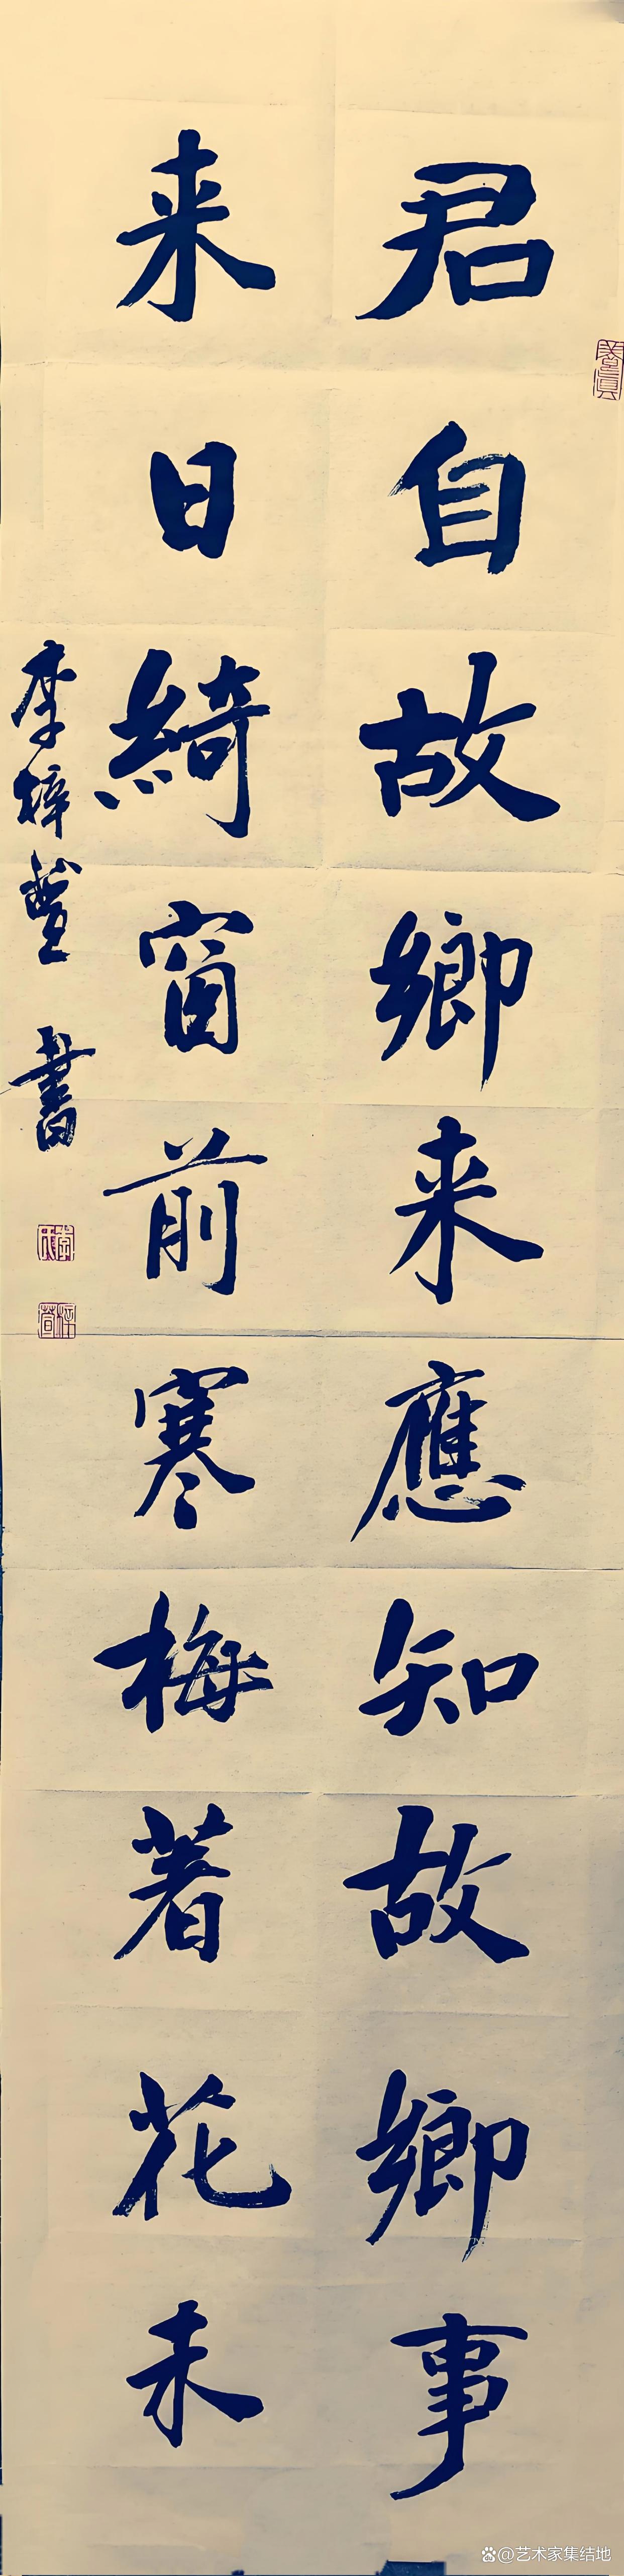 君自故鄉来應知故鄉事
来日綺窗前寒梅著花未
李梓萱 書
李氏
梓萱
@艺术家集结地